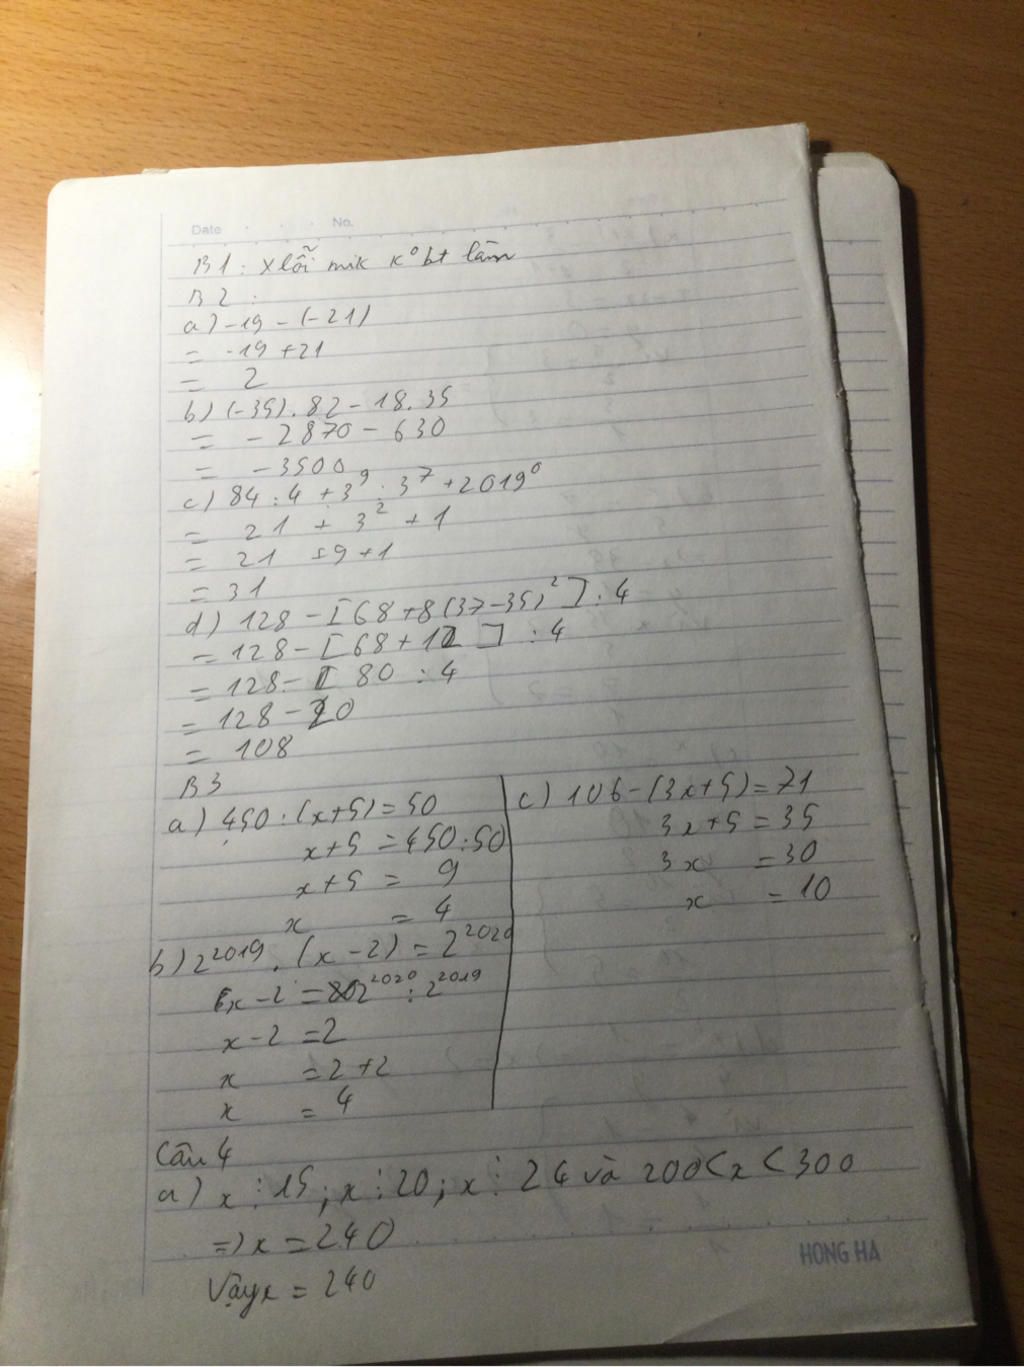 Date . . . No.
B1: xlỗi mik k⁰ bt làm
B2:
a) -19 - (-21)
= -19 + 21
= 2
b) (-35) . 82 - 18 . 35
= - 2870 - 630
= -3500
c) 84 : 4 + 3⁹ : 3⁷ + 2019⁰
= 21 + 3² + 1
= 21 + 9 + 1
= 31
d) 128 - [68 + 8(37-35)²] : 4
= 128 - [68 + 12] : 4
= 128 - 80 : 4
= 128 - 20
= 108
B3
a) 450 : (x+5) = 50
x+5 = 450 : 50
x+5 = 9
x = 4
b) 2²⁰¹⁹ . (x - 2) = 2²⁰²⁰
x - 2 = 2²⁰²⁰ : 2²⁰¹⁹
x - 2 = 2
x = 2 + 2
x = 4
c) 106 - (3x+5) = 71
3x + 5 = 35
3x = 30
x = 10
Câu 4
a) x ⋮ 15 ; x ⋮ 20 ; x ⋮ 24 và 200 < x < 300
=> x = 240
Vậy x = 240
HONG HA